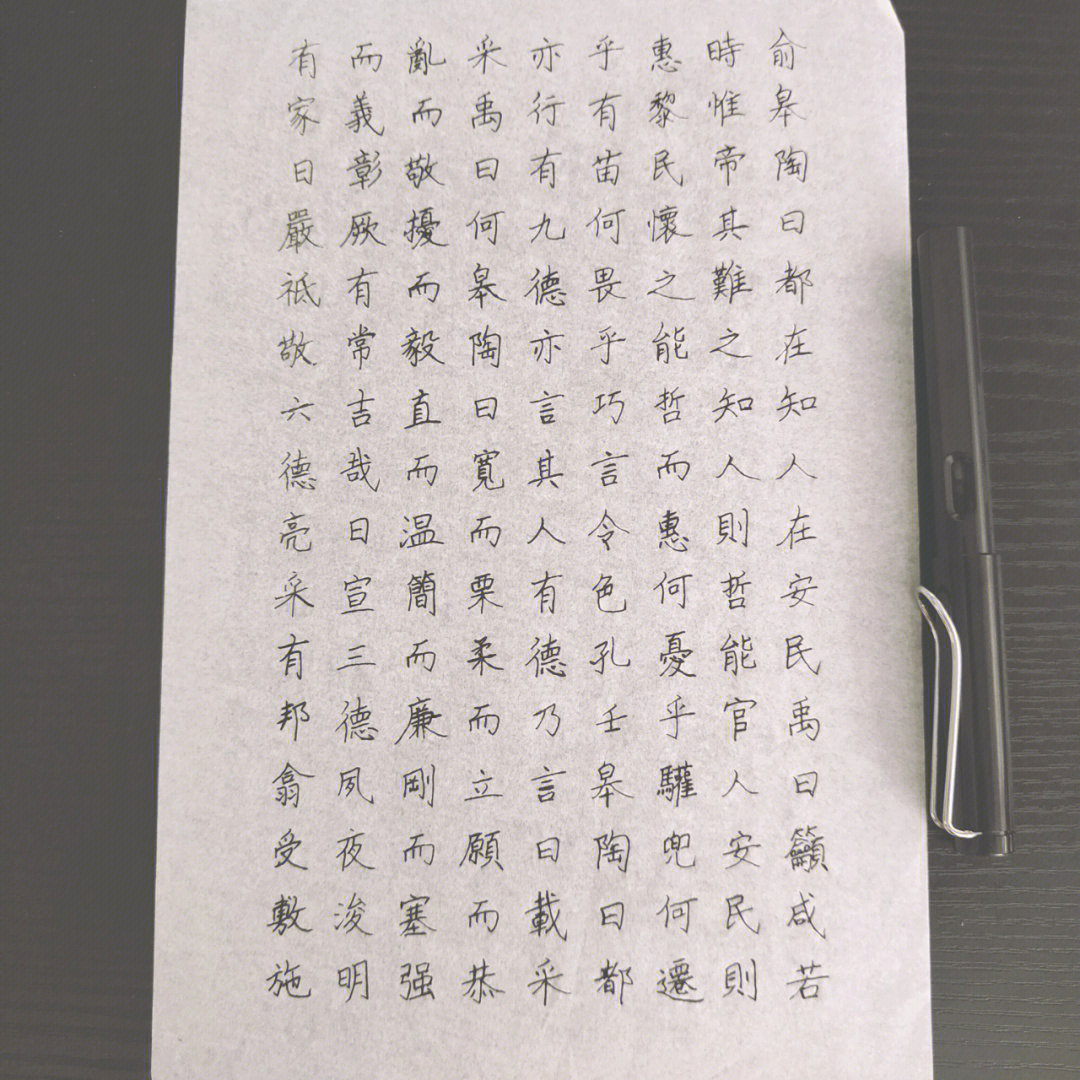 俞皋陶曰都在知人在安民禹曰籲咸若
時惟帝其難之知人則哲能官人安民則
惠黎民懷之能哲而惠何憂乎驩兜何遷
乎有笛何畏乎巧言令色孔壬皋陶曰都
亦行有九德亦言其人有德乃言曰載采
采禹曰何皋陶曰寬而栗柔而立願而恭
亂而敬擾而毅直而温簡而廉剛而塞强
而義彰厥有常吉哉日宣三德夙夜浚明
有家日嚴祗敬六德亮采有邦翕受敷施